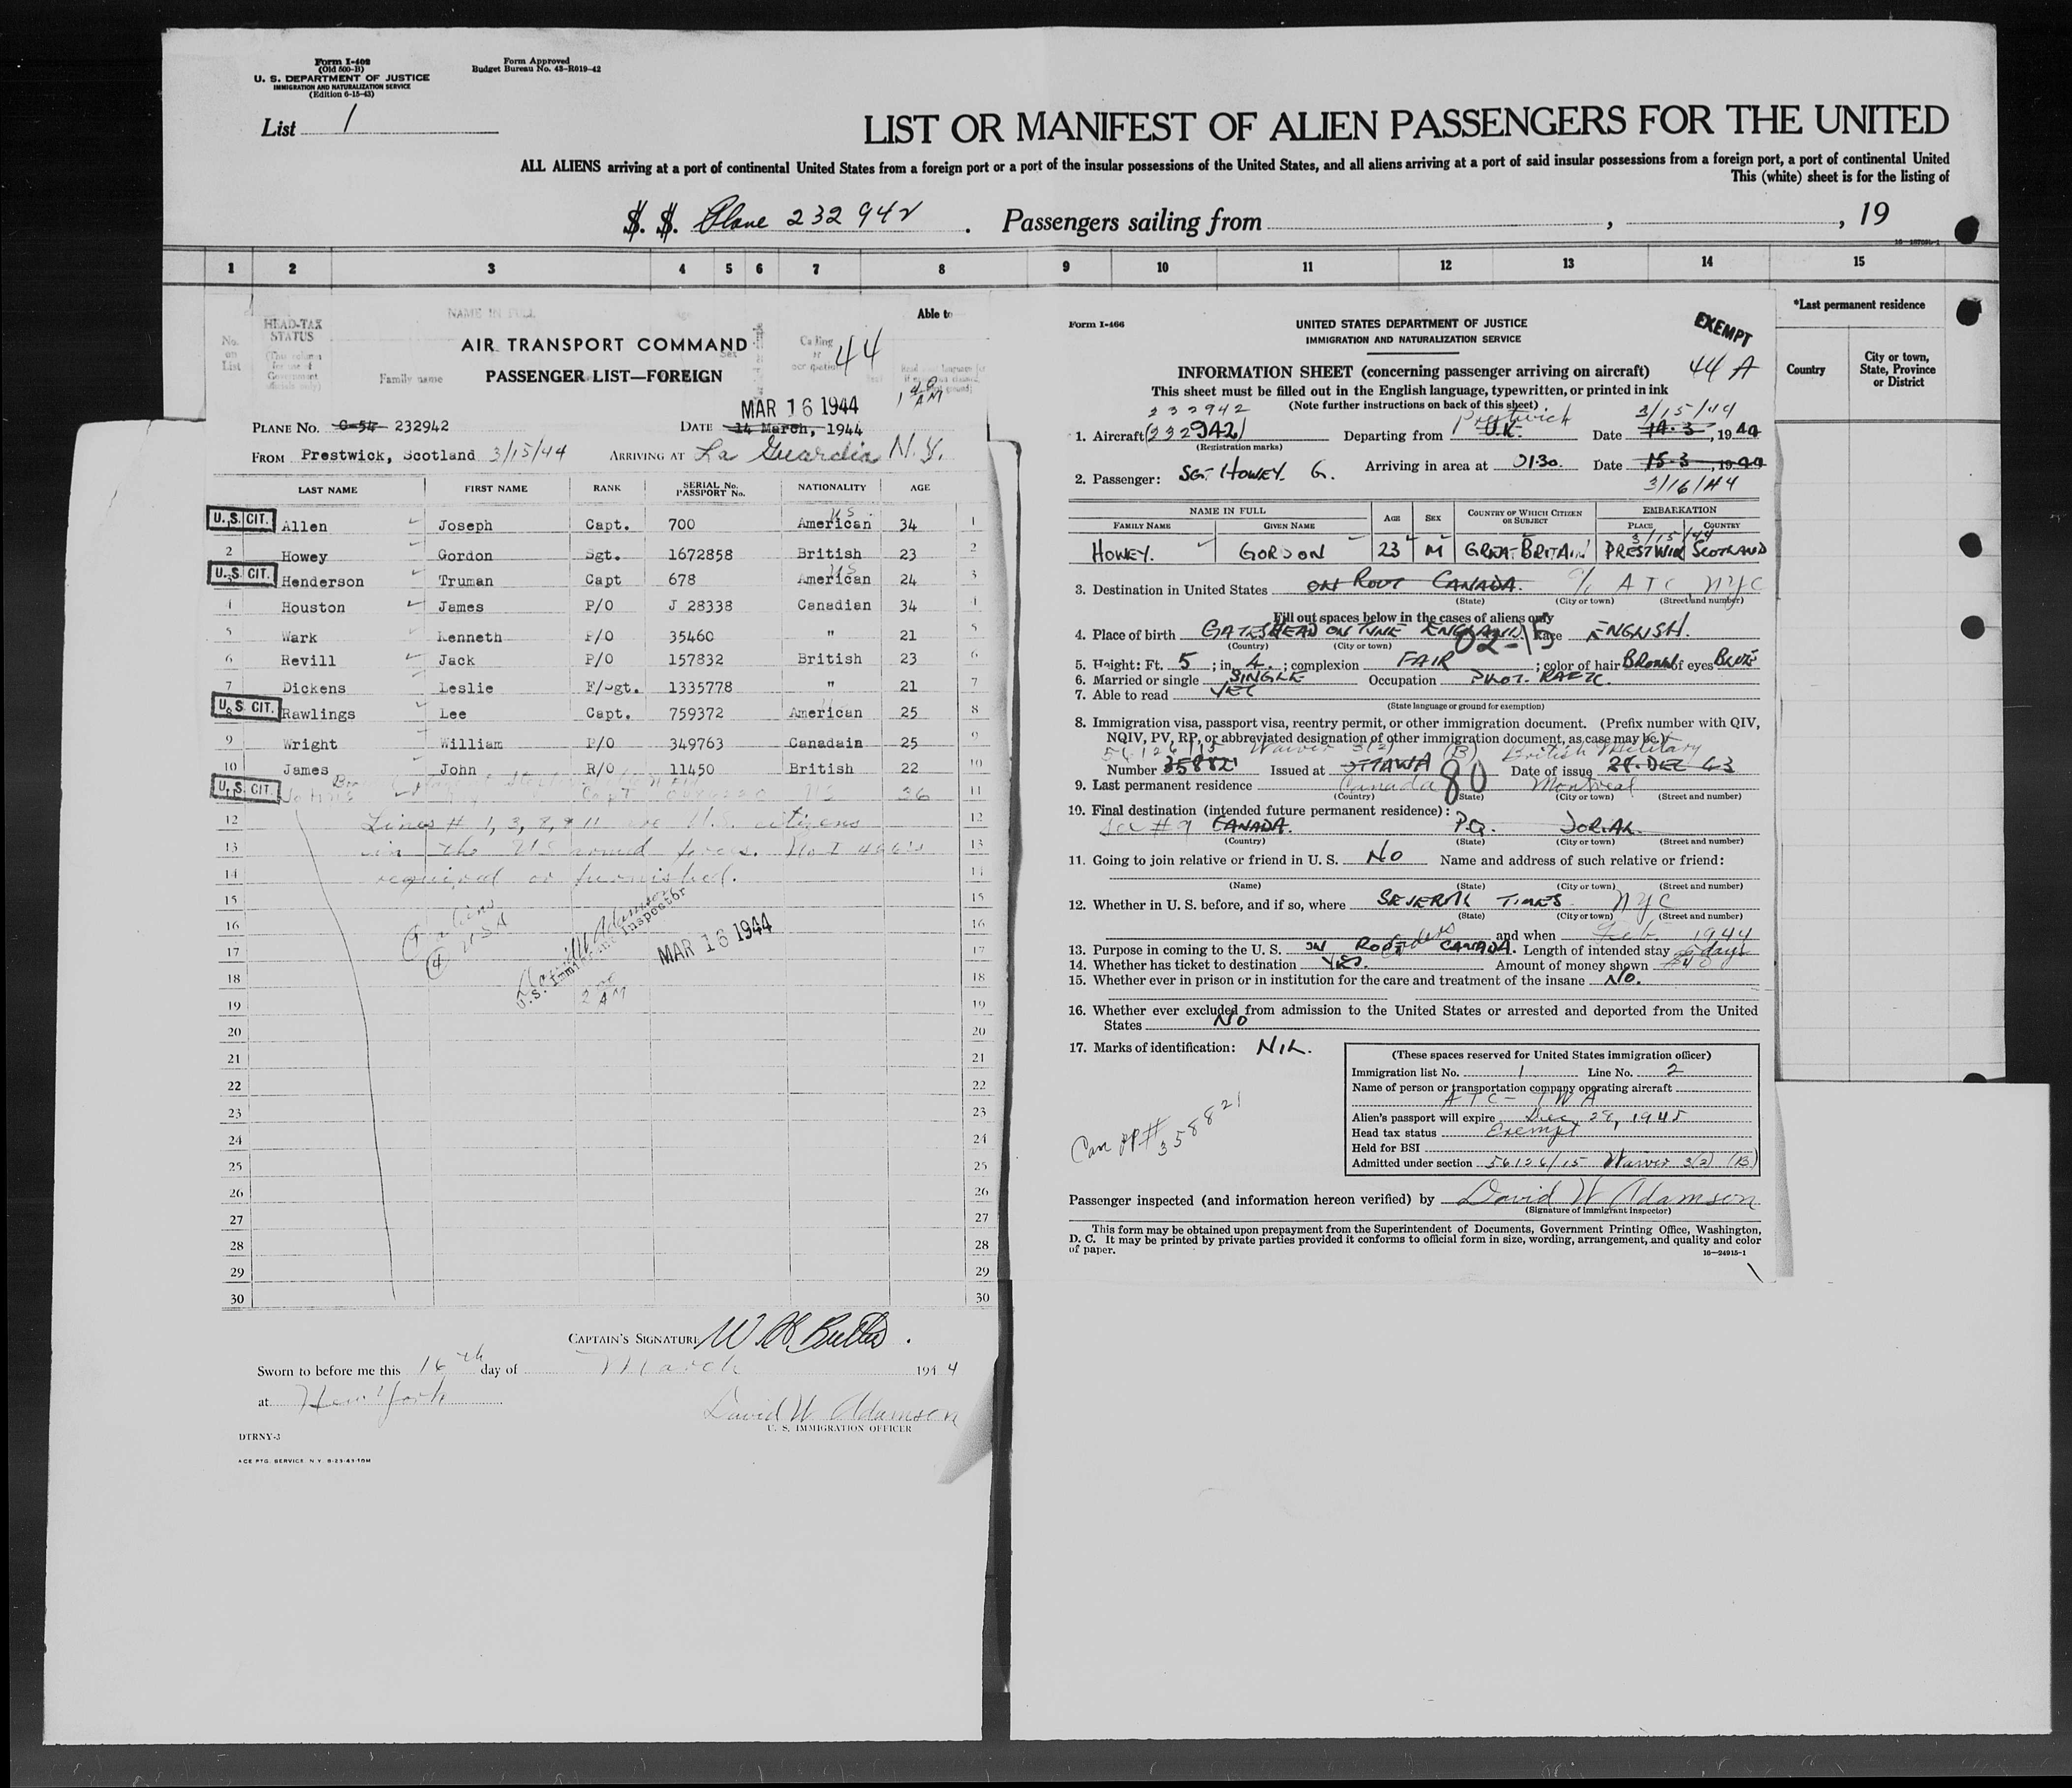 Form I-402
(Old 500-B)
U. S. DEPARTMENT OF JUSTICE
IMMIGRATION AND NATURALIZATION SERVICE
(Edition 6-15-43)
Form Approved
Budget Bureau No. 43-R019-42
List 1
LIST OR MANIFEST OF ALIEN PASSENGERS FOR THE UNITED
ALL ALIENS arriving at a port of continental United States from a foreign port or a port of the insular possessions of the United States, and all aliens arriving at a port of said insular possessions from a foreign port, a port of continental United
This (white) sheet is for the listing of
S. S. Plane 232942. Passengers sailing from , , 19
1 2 3 4 5 6 7 8 9 10 11 12 13 14 15
NAME IN FULL Able to
HEAD-TAX STATUS
No. on List
Family name
Sex
AIR TRANSPORT COMMAND
44
PASSENGER LIST—FOREIGN
MAR 16 1944
AM
PLANE NO. C-54 232942 DATE 14 March, 1944
FROM Prestwick, Scotland 3/15/44 ARRIVING AT La Guardia N.Y.
LAST NAME FIRST NAME RANK SERIAL No. PASSPORT No. NATIONALITY AGE
U.S. CIT. Allen Joseph Capt. 700 American U.S. 34 1
2 Howey Gordon Sgt. 1672858 British 23 2
U.S. CIT. Henderson Truman Capt 678 American US 24 3
4 Houston James P/O J 28338 Canadian 34 4
5 Wark Kenneth P/O 35460 " 21 5
6 Revill Jack P/O 157832 British 23 6
7 Dickens Leslie F/Sgt. 1335778 " 21 7
U.S. CIT. 8 Rawlings Lee Capt. 759372 American 25 8
9 Wright William P/O 349763 Canadain 25 9
10 James John R/O 11450 British 22 10
U.S. CIT. Capt US 36 11
12 Lines # 1, 3, 8, & 11 are U.S. citizens 12
13 in the US armed forces. No I 466's 13
14 required or furnished. 14
15 15
16 16
17 17
18 18
19 19
20 20
21 21
22 22
23 23
24 24
25 25
26 26
27 27
28 28
29 29
30 30
4 USA
David W Adamson
U.S. Immigrant Inspector
MAR 16 1944
AM
CAPTAIN'S SIGNATURE
Sworn to before me this 16th day of March 1944
at New York
David W. Adamson
U. S. IMMIGRATION OFFICER
DTRNY-3
ACE PTG. SERVICE N.Y. 6-23-43-10M
Form I-466
UNITED STATES DEPARTMENT OF JUSTICE
IMMIGRATION AND NATURALIZATION SERVICE
EXEMPT
44 A
INFORMATION SHEET (concerning passenger arriving on aircraft)
This sheet must be filled out in the English language, typewritten, or printed in ink
(Note further instructions on back of this sheet)
232942 Prestwick 3/15/44
1. Aircraft (232942) Departing from U.K. Date 14.3, 1944
(Registration marks)
2. Passenger: SGT HOWEY G. Arriving in area at 0130. Date 15.3, 1944
3/16/44
NAME IN FULL AGE SEX COUNTRY OF WHICH CITIZEN OR SUBJECT EMBARKATION
FAMILY NAME GIVEN NAME PLACE COUNTRY
3/15/44
HOWEY. GORDON 23 M GREAT BRITAIN PRESTWICK SCOTLAND
3. Destination in United States ON ROUT CANADA. c/o ATC NYC
(State) (City or town) (Street and number)
Fill out spaces below in the cases of aliens only
4. Place of birth GATESHEAD ON TYNE ENGLAND Race ENGLISH.
(Country) (City or town)
02-13
5. Height: Ft. 5; in 4.; complexion FAIR; color of hair BROWN of eyes BLUE
6. Married or single SINGLE Occupation
7. Able to read YES
(State language or ground for exemption)
8. Immigration visa, passport visa, reentry permit, or other immigration document. (Prefix number with QIV,
NQIV, PV, RP, or abbreviated designation of other immigration document, as case may be.)
56126/15 Waiver 3(2) (B) British Military
Number 358821 Issued at OTTAWA Date of issue 28. DEC 43
80
9. Last permanent residence Canada Montreal
(Country) (State) (City or town) (Street and number)
10. Final destination (intended future permanent residence):
# 9 CANADA. P.Q. DORVAL
(Country) (State) (City or town) (Street and number)
11. Going to join relative or friend in U. S. NO Name and address of such relative or friend:
(Name) (State) (City or town) (Street and number)
12. Whether in U. S. before, and if so, where SEVERAL TIMES NYC
(State) (City or town) (Street and number)
and when Feb. 1944
13. Purpose in coming to the U. S. CANADA. Length of intended stay days
14. Whether has ticket to destination YES. Amount of money shown
15. Whether ever in prison or in institution for the care and treatment of the insane NO.
16. Whether ever excluded from admission to the United States or arrested and deported from the United
States NO
17. Marks of identification: NIL.
(These spaces reserved for United States immigration officer)
Immigration list No. 1 Line No. 2
Name of person or transportation company operating aircraft
ATC - TWA
Alien's passport will expire Dec 28, 1945
Head tax status Exempt
Held for BSI
Admitted under section 56126/15 Waiver 3(2) (B)
Can PP# 358821
Passenger inspected (and information hereon verified) by David W Adamson
(Signature of immigrant inspector)
This form may be obtained upon prepayment from the Superintendent of Documents, Government Printing Office, Washington,
D. C. It may be printed by private parties provided it conforms to official form in size, wording, arrangement, and quality and color
of paper. 16—24915-1
*Last permanent residence
Country City or town, State, Province or District